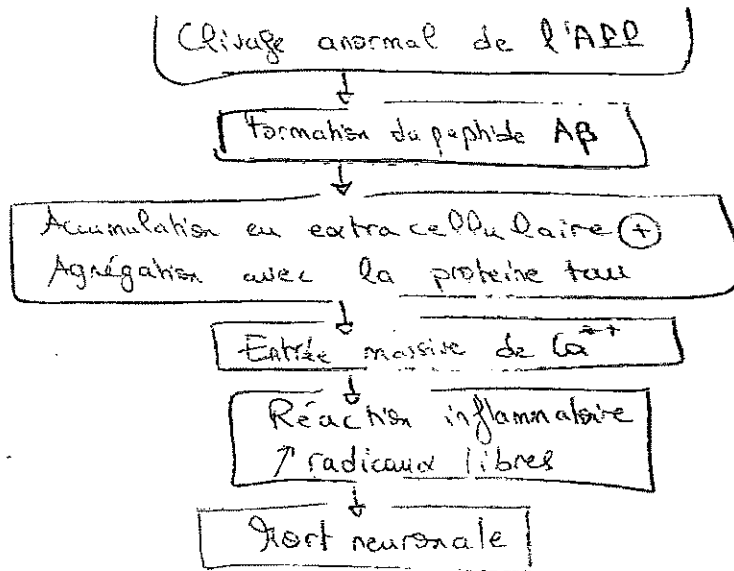 Clivage anormal de l'APP
Formation du peptide Aβ
Accumulation en extracellulaire +
Agrégation avec la proteine tau
Entrée massive de Ca++
Réaction inflammatoire
↑ radicaux libres
Mort neuronale